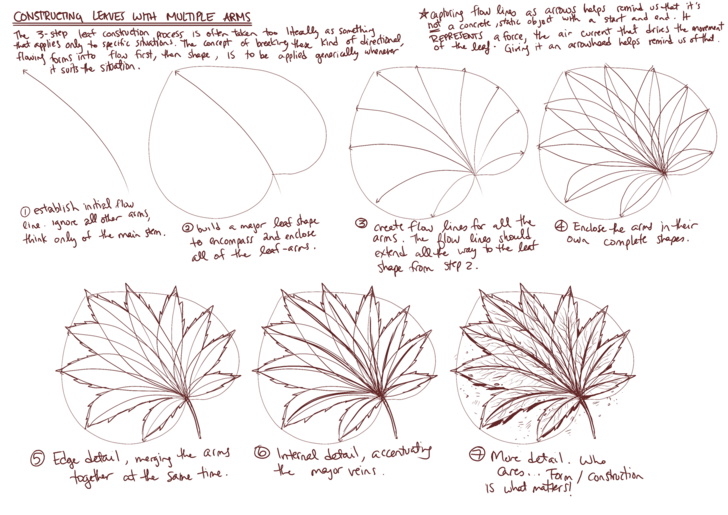 CONSTRUCTING LEAVES WITH MULTIPLE ARMS
The 3-step leaf construction process is often taken too literally as something
that applies only to specific situations. The concept of breaking these kind of directional,
flowing forms into flow first, then shape, is to be applied generically whenever
it suits the situation.
★ capturing flow lines as arrows helps remind us that it's
not a concrete, static object with a start and end. It
REPRESENTS a force, the air current that drives the movement
of the leaf. Giving it an arrowhead helps remind us of that.
① establish initial flow
line. ignore all other arms,
think only of the main stem.
② build a major leaf shape
to encompass and enclose
all of the leaf-arms.
③ create flow lines for all the
arms. The flow lines should
extend all the way to the leaf
shape from step 2.
④ Enclose the arms in their
own complete shapes.
⑤ Edge detail, merging the arms
together at the same time.
⑥ Internal detail, accentuating
the major veins.
⑦ More detail. Who
cares... Form/construction
is what matters!